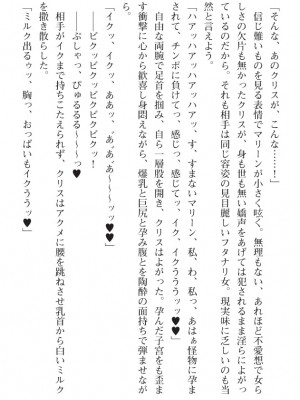 「そんな、あのクリスが、こんな……！」
信じ難いものを見る表情でマリーンが小さく呟く。無理もない、あれほど不愛想で女ら
しさの欠片も無かったクリスが、身も世も無い嬌声をあげては犯されるまま淫らによがっ
ているのだから。それも相手は同じ容姿の見目麗しいフタナリ女。現実味に乏しいのも当
然と言えよう。
「ハアッハアッハアッハアッ、す、すまないマリーン、私、わ、っ、あはぁ怪物に孕ま
されて、チンポに負けてっ、感じっ、感じてッ、イク、イクううッッ♥♥」
自由な両腕で足首を掴み、自ら一層股を開き、クリスはよがった。孕んだ子宮をも歪ま
す衝撃に心から歓喜し身悶えながら、爆乳と巨尻と孕み腹とを陶酔の面持ちで弾ませなが
ら。
「イクッ、イクッ、あぁッ、あ、あ、あ～～～ッ♥♥」
――ビクッビクッビクビクビクッ！
――ぶしゃっ、ぴゅるるる～～～っ♥
相手がイクまで持ちこたえられず、クリスはアクメに腰を跳ねさせ乳首から白いミルク
を撒き散らした。
「ミルク出るゥッ、胸っ、おっぱいもイクううッ♥♥」